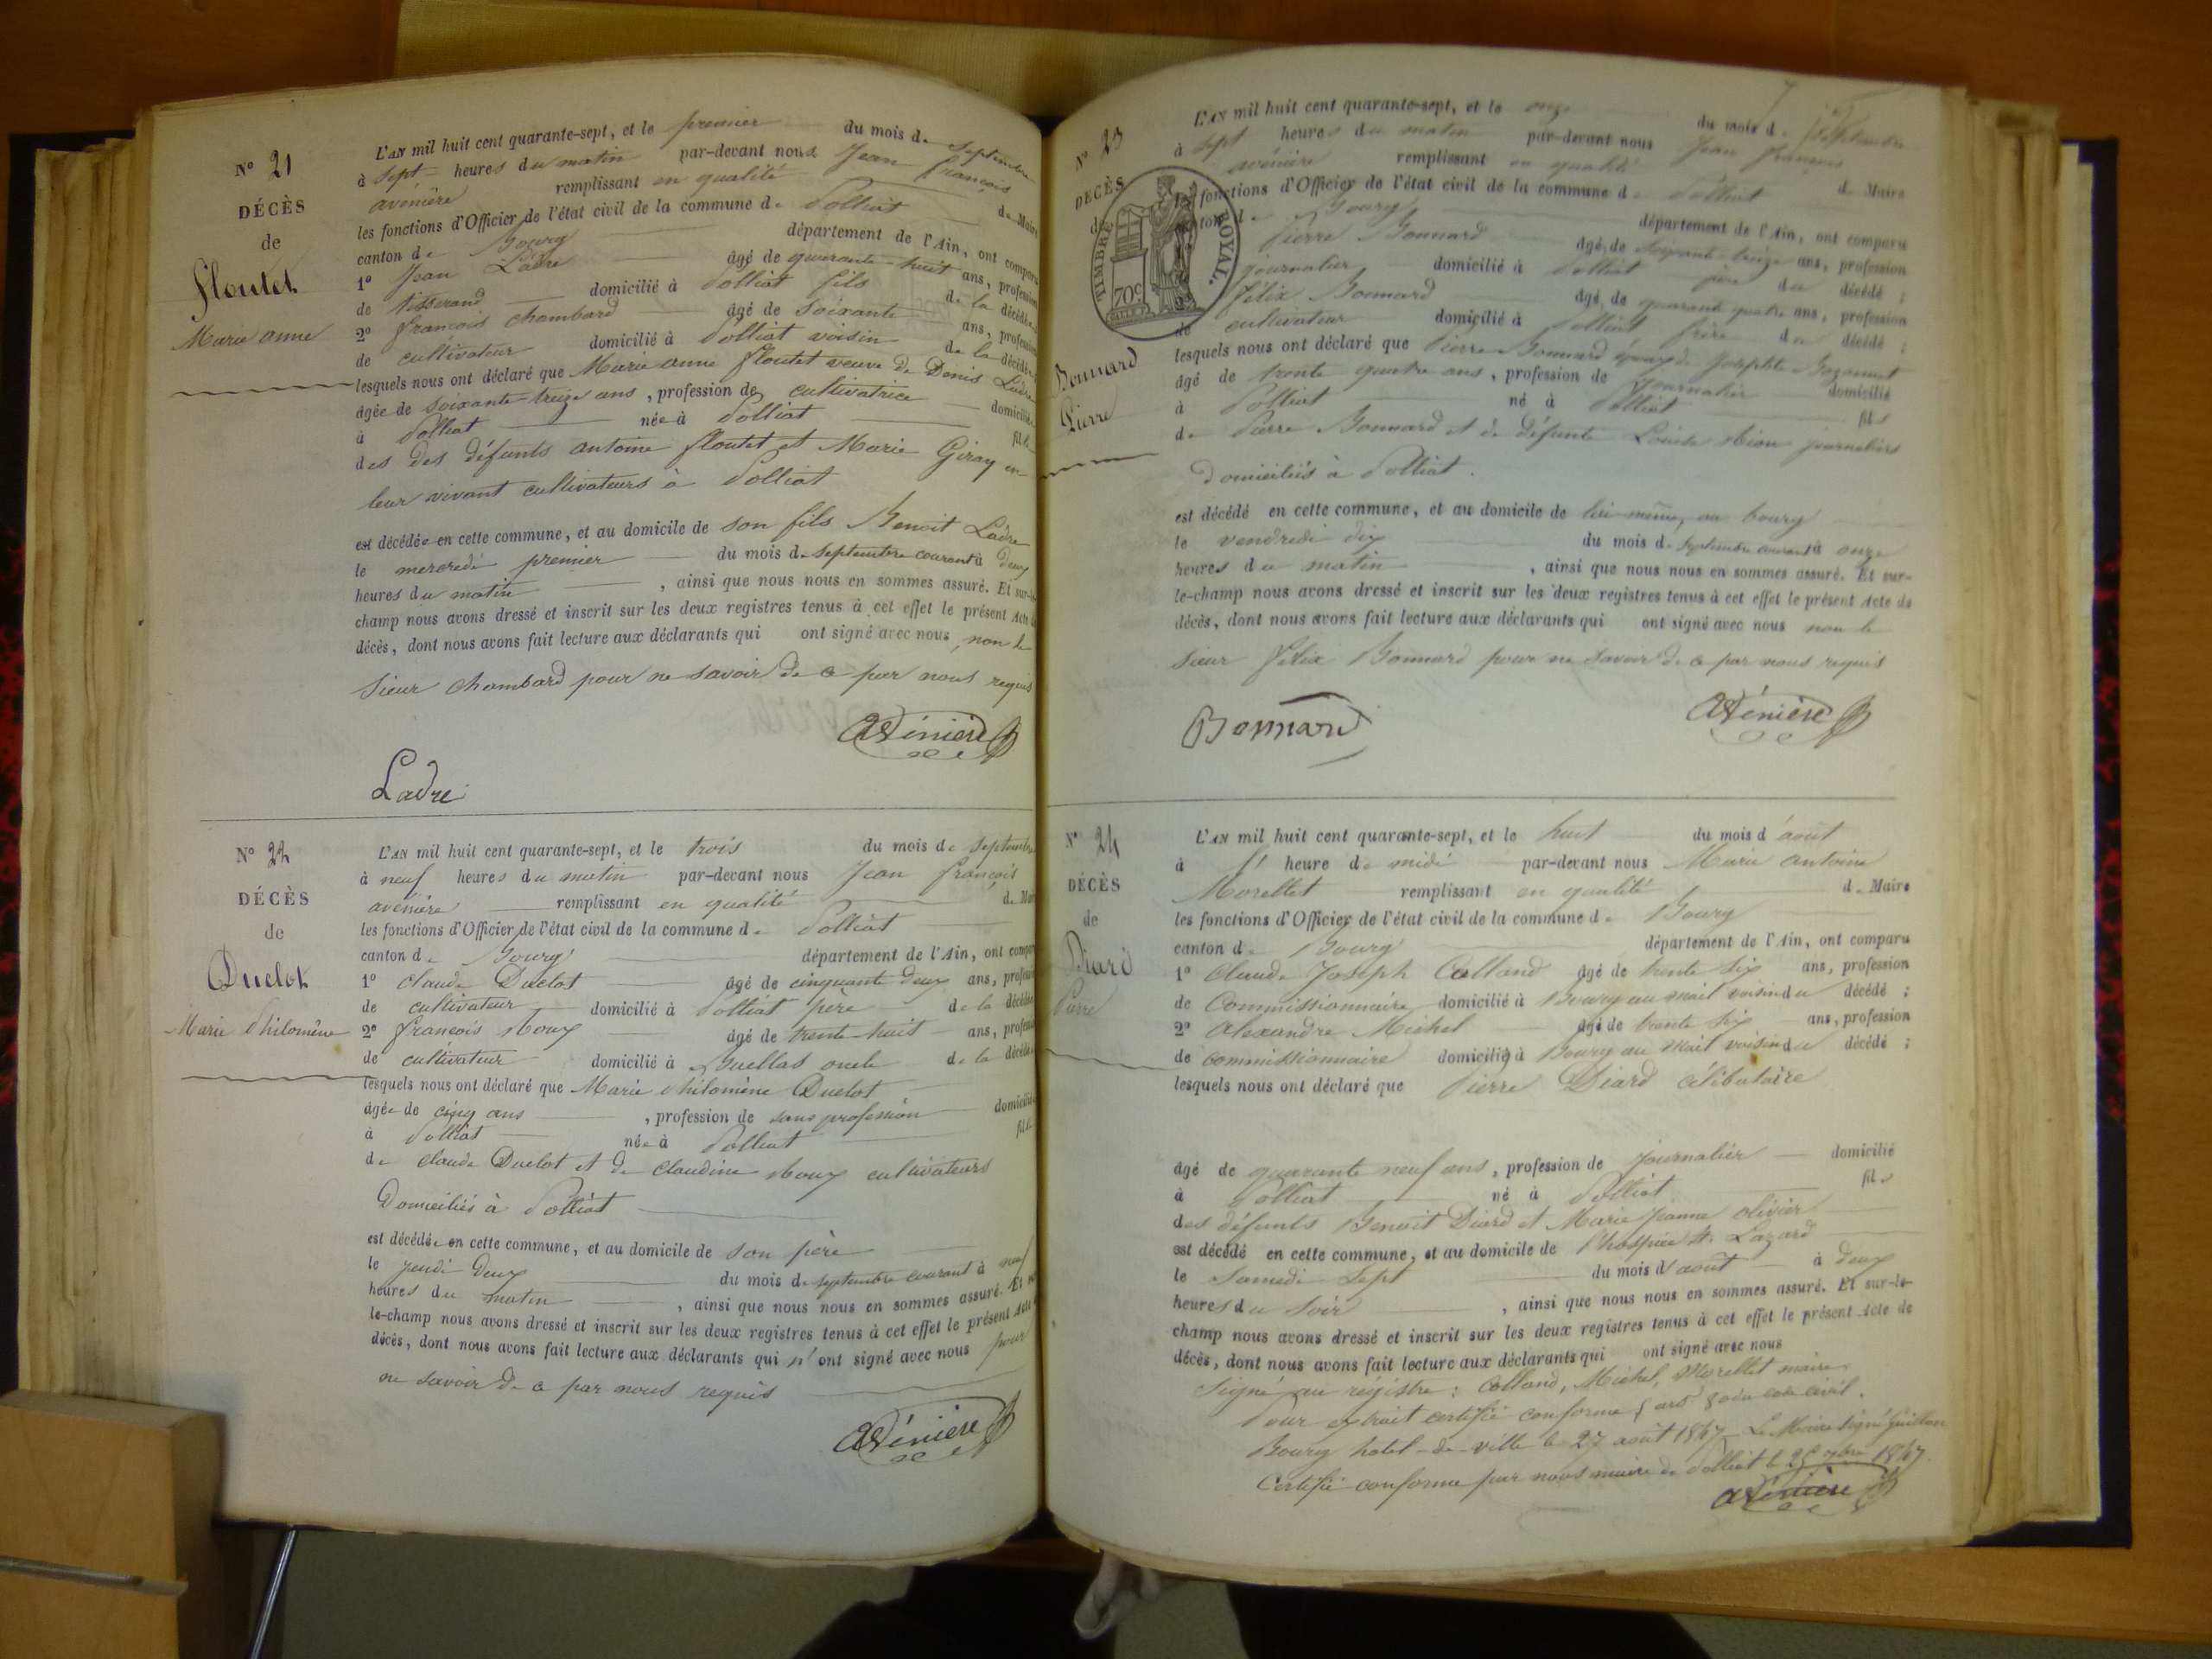 N° 21
DÉCÈS
de
Floutet
Marie anne
L'AN mil huit cent quarante-sept, et le premier du mois de septembre
à sept heures du matin par-devant nous Jean François
avénière remplissant en qualité de Maire
les fonctions d'Officier de l'état civil de la commune de Polliat
canton de Bourg département de l'Ain, ont comparu
1° Jean Ladre âgé de quarante-huit ans, profession
de tisserand domicilié à Polliat fils de la décédée
2° françois chambard âgé de soixante ans, profession
de cultivateur domicilié à Polliat voisin de la décédée
lesquels nous ont déclaré que Marie anne floutet veuve de Denis Ladre
âgée de soixante treize ans, profession de cultivatrice domiciliée
à Polliat née à Polliat fille
des des défunts antoine floutet et Marie Giray en
leur vivant cultivateurs à Polliat
est décédée en cette commune, et au domicile de son fils Benoit Ladre
le mercredi premier du mois de septembre courant à deux
heures du matin, ainsi que nous nous en sommes assuré. Et sur-le-
champ nous avons dressé et inscrit sur les deux registres tenus à cet effet le présent Acte de
décès, dont nous avons fait lecture aux déclarants qui ont signé avec nous, non le
sieur chambard pour ne savoir de ce par nous requis
avénière
Ladre
N° 22
DÉCÈS
de
Duclot
Marie Philomène
L'AN mil huit cent quarante-sept, et le trois du mois de septembre
à neuf heures du matin par-devant nous Jean françois
avénière remplissant en qualité de Maire
les fonctions d'Officier de l'état civil de la commune de Polliat
canton de Bourg département de l'Ain, ont comparu
1° claude Duclot âgé de cinquante deux ans, profession
de cultivateur domicilié à Polliat père de la décédée
2° françois Roux âgé de trente huit ans, profession
de cultivateur domicilié à Buellas oncle de la décédée
lesquels nous ont déclaré que Marie Philomène Duclot
âgée de cinq ans, profession de sans profession domiciliée
à Polliat née à Polliat fille
de claude Duclot et de claudine Roux cultivateurs
Domiciliés à Polliat
est décédée en cette commune, et au domicile de son père
le jeudi deux du mois de septembre courant à neuf
heures du matin, ainsi que nous nous en sommes assuré. Et sur-
le-champ nous avons dressé et inscrit sur les deux registres tenus à cet effet le présent Acte de
décès, dont nous avons fait lecture aux déclarants qui n'ont signé avec nous pour
ne savoir de ce par nous requis
avénière
N° 23
DÉCÈS
de
TIMBRE ROYAL.
70c
Bonnard
Pierre
L'AN mil huit cent quarante-sept, et le onze du mois de septembre
à sept heures du matin par-devant nous Jean françois
avénière remplissant en qualité de Maire
les fonctions d'Officier de l'état civil de la commune de Polliat
canton de Bourg département de l'Ain, ont comparu
Pierre Bonnard âgé de soixante-treize ans, profession
journalier domicilié à Polliat père du décédé ;
félix Bonnard âgé de quarante quatre ans, profession
de cultivateur domicilié à Polliat frère du décédé ;
lesquels nous ont déclaré que Pierre Bonnard époux de Josephte
âgé de trente quatre ans, profession de journalier domicilié
à Polliat né à Polliat fils
de Pierre Bonnard et de défunte Louise journaliers
domiciliés à Polliat.
est décédé en cette commune, et au domicile de lui même, au bourg
le vendredi dix du mois de septembre courant à onze
heures du matin, ainsi que nous nous en sommes assuré. Et sur-
le-champ nous avons dressé et inscrit sur les deux registres tenus à cet effet le présent Acte de
décès, dont nous avons fait lecture aux déclarants qui ont signé avec nous non le
sieur félix Bonnard pour ne savoir de ce par nous requis
Bonnard
avénière
N° 24
DÉCÈS
de
Diard
Pierre
L'AN mil huit cent quarante-sept, et le huit du mois d'août
à l'heure de midi par-devant nous Marie antoine
Morellet remplissant en qualité de Maire
les fonctions d'Officier de l'état civil de la commune de Bourg
canton de Bourg département de l'Ain, ont comparu
1° Claude Joseph Colland âgé de trente six ans, profession
de Commissionnaire domicilié à Bourg au mail voisin du décédé ;
2° Alexandre Michel âgé de trente six ans, profession
de commissionnaire domicilié à Bourg au mail voisin du décédé ;
lesquels nous ont déclaré que Pierre Diard célibataire
âgé de quarante neuf ans, profession de journalier domicilié
à Polliat né à Polliat fils
des défunts Benoit Diard et Marie Jeanne olivier
est décédé en cette commune, et au domicile de l'hospice St. Lazard
le samedi sept du mois d'août à deux
heures du soir, ainsi que nous nous en sommes assuré. Et sur-le-
champ nous avons dressé et inscrit sur les deux registres tenus à cet effet le présent Acte de
décès, dont nous avons fait lecture aux déclarants qui ont signé avec nous
Signé au régistre : Colland, Michel, Morellet maire
Pour extrait certifié conforme code civil.
Bourg hotel-de-ville le 27 août 1847 Le Maire signé
Certifié conforme par nous maire de Polliat le 25 7bre 1847
avénière